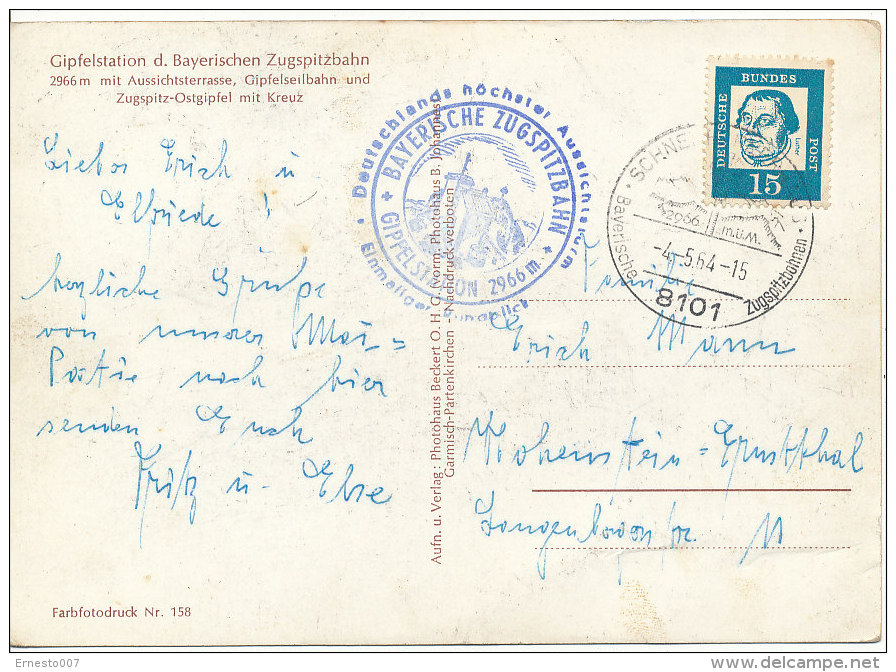 Gipfelstation d. Bayerischen Zugspitzbahn
2966 m mit Aussichtsterrasse, Gipfelseilbahn und
Zugspitz-Ostgipfel mit Kreuz
Liebe Erich u
Elfriede !
herzliche Grüße
von unserer Mai=
Partie nach hier
senden Euch
Fritz u. Else
Farbfotodruck Nr. 158
Aufn. u. Verlag: Photohaus Beckert O. H. G. Vorm. Photohaus B. Johannes
Garmisch-Partenkirchen Nachdruck verboten
Deutschlands höchster Aussichtsturm
BAYERISCHE ZUGSPITZBAHN
GIPFELSTATION 2966 m
Einmaliger
DEUTSCHE
BUNDES
POST
15
2966 m.ü.M.
-4.-5.64-15
Bayerische
Zugspitzbahnen
8101
Familie
Erich Mann
Hohenstein=Ernstthal
11
Ernesto007
delcampe.net